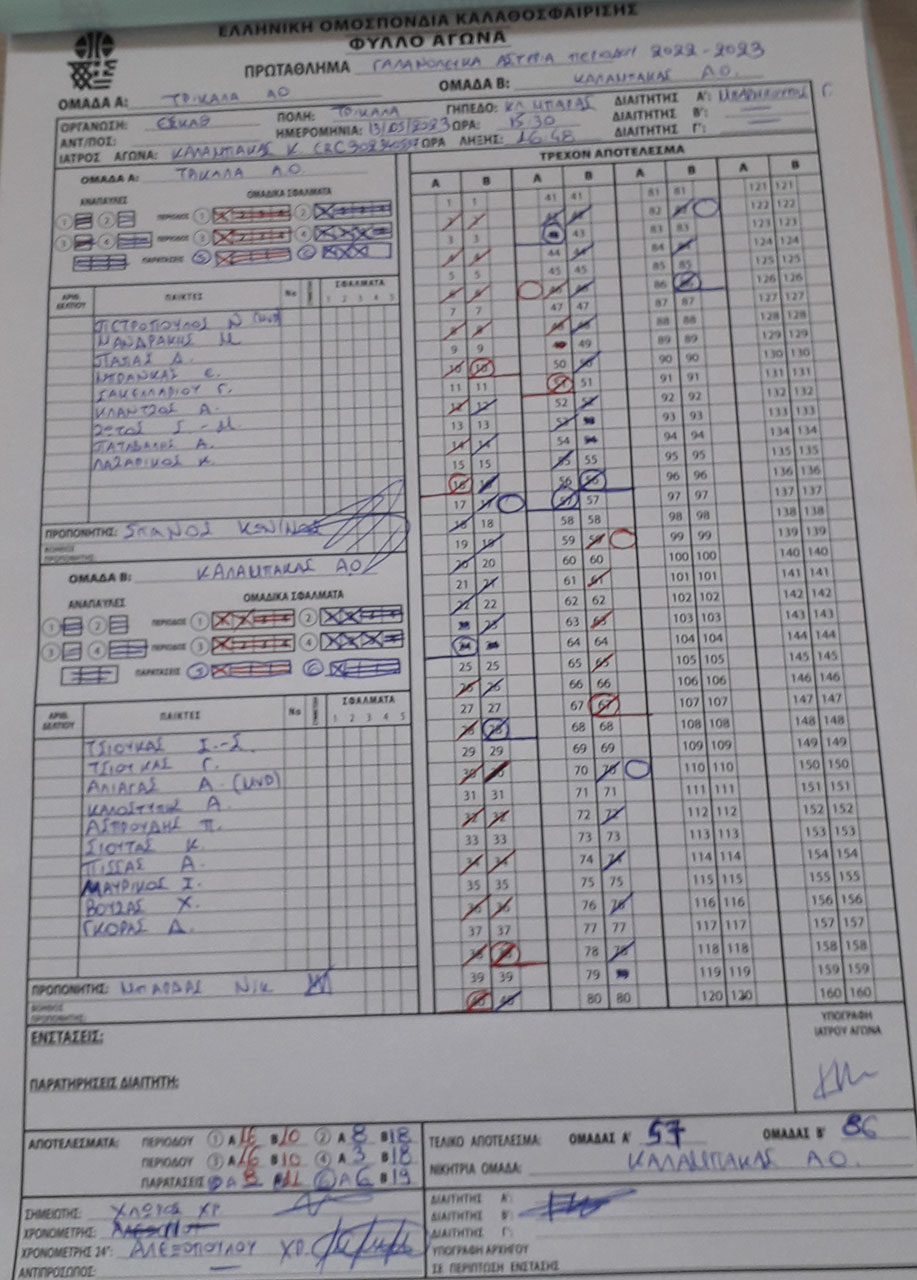 ΕΛΛΗΝΙΚΗ ΟΜΟΣΠΟΝΔΙΑ ΚΑΛΑΘΟΣΦΑΙΡΙΣΗΣ
ΦΥΛΛΟ ΑΓΩΝΑ
ΠΡΩΤΑΘΛΗΜΑ ΓΑΛΑΝΟΛΕΥΚΑ ΑΣΤΕΡΙΑ ΠΕΡΙΟΔΟΥ 2022-2023
ΟΜΑΔΑ Α: ΤΡΙΚΑΛΑ ΑΟ ΟΜΑΔΑ Β: ΚΑΛΑΜΠΑΚΑΣ Α.Ο.
ΟΡΓΑΝΩΣΗ: ΕΣΚΑΘ ΠΟΛΗ: ΤΡΙΚΑΛΑ ΓΗΠΕΔΟ: ΚΛ. ΜΠΑΡΑΣ ΔΙΑΙΤΗΤΗΣ Α':
ΑΝΤ/ΠΟΣ: ΗΜΕΡΟΜΗΝΙΑ: 13/05/2023 ΩΡΑ: 15:30 ΔΙΑΙΤΗΤΗΣ Β':
ΙΑΤΡΟΣ ΑΓΩΝΑ: ΚΑΛΑΜΠΑΚΑΣ Κ. ΩΡΑ ΛΗΞΗΣ: 16:48 ΔΙΑΙΤΗΤΗΣ Γ':
ΟΜΑΔΑ Α: ΤΡΙΚΑΛΑ Α.Ο.
ΑΝΑΠΑΥΛΕΣ ΟΜΑΔΙΚΑ ΣΦΑΛΜΑΤΑ
1 2 ΠΕΡΙΟΔΟΣ 1 1 2 3 4 2 1 2 3 4
3 4 ΠΕΡΙΟΔΟΣ 3 1 2 3 4 4 1 2 3 4
ΠΑΡΑΤΑΣΕΙΣ 5 6
ΑΡΙΘ. ΔΕΛΤΙΟΥ ΠΑΙΚΤΕΣ Νο ΣΦΑΛΜΑΤΑ
1 2 3 4 5
ΠΕΤΡΟΠΟΥΛΟΣ Ν (UND)
ΜΑΝΔΡΑΚΗΣ Μ
ΠΑΠΑΣ Δ.
ΜΠΡΑΝΚΑΣ Ε.
ΣΑΚΕΛΛΑΡΙΟΥ Γ.
ΚΛΑΝΤΖΟΣ Α.
Ι-Μ.
Α.
ΛΑΖΑΡΙΚΟΣ Κ.
ΠΡΟΠΟΝΗΤΗΣ: ΣΠΑΝΟΣ ΚΩΝ/ΝΟΣ
ΒΟΗΘΟΣ ΠΡΟΠΟΝΗΤΗΣ:
ΟΜΑΔΑ Β: ΚΑΛΑΜΠΑΚΑΣ Α.Ο.
ΑΝΑΠΑΥΛΕΣ ΟΜΑΔΙΚΑ ΣΦΑΛΜΑΤΑ
1 2 ΠΕΡΙΟΔΟΣ 1 1 2 3 4 2 1 2 3 4
3 4 ΠΕΡΙΟΔΟΣ 3 1 2 3 4 4 1 2 3 4
ΠΑΡΑΤΑΣΕΙΣ 5 6
ΑΡΙΘ. ΔΕΛΤΙΟΥ ΠΑΙΚΤΕΣ Νο ΣΦΑΛΜΑΤΑ
1 2 3 4 5
ΤΣΙΟΥΚΑΣ Σ.-Σ.
ΤΣΙΟΥΚΑΣ Γ.
ΑΛΙΑΓΑΣ Α. (UND)
ΚΑΛΟΣΤΥΠΗΣ Α.
ΑΣΠΡΟΥΔΗΣ Π.
ΣΙΟΥΤΑΣ Κ.
ΠΙΣΣΑΣ Α.
ΜΑΥΡΙΚΟΣ Ι.
ΒΟΥΖΑΣ Χ.
ΓΚΟΡΑΣ Δ.
ΠΡΟΠΟΝΗΤΗΣ: ΝΙΚ
ΒΟΗΘΟΣ ΠΡΟΠΟΝΗΤΗΣ:
ΤΡΕΧΟΝ ΑΠΟΤΕΛΕΣΜΑ
Α Β Α Β Α Β Α Β
1 1 41 41 81 81 121 121
2 2 42 42 82 82 122 122
3 3 43 43 83 83 123 123
4 4 44 44 84 84 124 124
5 5 45 45 85 85 125 125
6 6 46 46 86 86 126 126
7 7 47 47 87 87 127 127
8 8 48 48 88 88 128 128
9 9 49 49 89 89 129 129
10 10 50 50 90 90 130 130
11 11 51 51 91 91 131 131
12 12 52 52 92 92 132 132
13 13 53 53 93 93 133 133
14 14 54 54 94 94 134 134
15 15 55 55 95 95 135 135
16 16 56 56 96 96 136 136
17 17 57 57 97 97 137 137
18 18 58 58 98 98 138 138
19 19 59 59 99 99 139 139
20 20 60 60 100 100 140 140
21 21 61 61 101 101 141 141
22 22 62 62 102 102 142 142
23 23 63 63 103 103 143 143
24 24 64 64 104 104 144 144
25 25 65 65 105 105 145 145
26 26 66 66 106 106 146 146
27 27 67 67 107 107 147 147
28 28 68 68 108 108 148 148
29 29 69 69 109 109 149 149
30 30 70 70 110 110 150 150
31 31 71 71 111 111 151 151
32 32 72 72 112 112 152 152
33 33 73 73 113 113 153 153
34 34 74 74 114 114 154 154
35 35 75 75 115 115 155 155
36 36 76 76 116 116 156 156
37 37 77 77 117 117 157 157
38 38 78 78 118 118 158 158
39 39 79 79 119 119 159 159
40 40 80 80 120 120 160 160
ΕΝΣΤΑΣΕΙΣ:
ΥΠΟΓΡΑΦΗ
ΙΑΤΡΟΥ ΑΓΩΝΑ
ΠΑΡΑΤΗΡΗΣΕΙΣ ΔΙΑΙΤΗΤΗ:
ΑΠΟΤΕΛΕΣΜΑΤΑ: ΠΕΡΙΟΔΟΥ 1 Α 16 Β 10 2 Α 8 Β 18
ΠΕΡΙΟΔΟΥ 3 Α 16 Β 10 4 Α 3 Β 18
ΠΑΡΑΤΑΣΕΙΣ 5 Α 8 Β 11 6 Α 6 Β 19
ΤΕΛΙΚΟ ΑΠΟΤΕΛΕΣΜΑ: ΟΜΑΔΑΣ Α' 57 ΟΜΑΔΑΣ Β' 86
ΝΙΚΗΤΡΙΑ ΟΜΑΔΑ: ΚΑΛΑΜΠΑΚΑΣ Α.Ο.
ΣΗΜΕΙΩΤΗΣ: ΧΛΩΡΟΣ ΧΡ
ΧΡΟΝΟΜΕΤΡΗΣ:
ΧΡΟΝΟΜΕΤΡΗΣ 24": ΑΛΕΞΟΠΟΥΛΟΥ ΧΡ.
ΑΝΤΙΠΡΟΣΩΠΟΣ:
ΔΙΑΙΤΗΤΗΣ Α':
ΔΙΑΙΤΗΤΗΣ Β':
ΔΙΑΙΤΗΤΗΣ Γ':
ΥΠΟΓΡΑΦΗ ΑΡΧΗΓΟΥ
ΣΕ ΠΕΡΙΠΤΩΣΗ ΕΝΣΤΑΣΗΣ